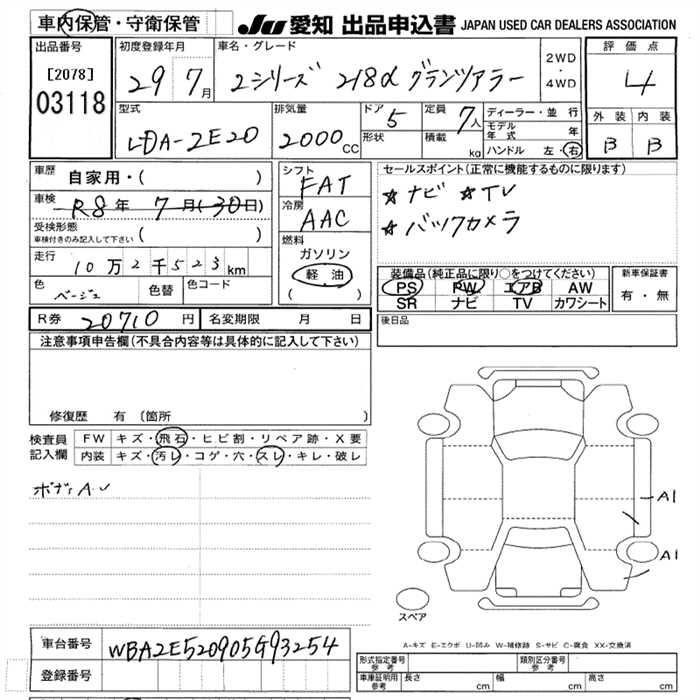 車内保管・守衛保管 JU 愛知 出品申込書 JAPAN USED CAR DEALERS ASSOCIATION
出品番号 [2078] 03118
初度登録年月 29 7月
車名・グレード 2シリーズ 218d グランツアラー
2WD・4WD
評価点 4
外装 内装
B B
型式 LDA-2E20
排気量 2000cc
ドア 5
形状
定員 7人
積載 kg
ディーラー・並行
モデル年式 年
ハンドル 左・右
車歴 自家用・( )
車検 R8年 7月(30日)
受検形態 ( )
車検付きのみ記入して下さい
走行 10万2千523km
色 ベージュ 色替 色コード
シフト FAT
冷房 AAC
燃料
ガソリン
軽油
( )
セールスポイント(正常に機能するものに限ります)
☆ナビ ☆TV
☆バックカメラ
装備品(純正品に限り○をつけてください)
PS PW エアB AW
SR ナビ TV カワシート
新車保証書
有・無
R券 20710円 名変期限 月 日
後日品
注意事項申告欄(不具合内容等は具体的に記入して下さい)
修復歴 有(箇所 )
検査員記入欄
FW キズ・飛石・ヒビ割・リペア跡・X要
内装 キズ・汚レ・コゲ・穴・スレ・キレ・破レ
ボディA.U
A1
A1
スペア
A-キズ E-エクボ U-凹み W-補修跡 S-サビ C-腐食 XX-交換済
車台番号 WBA2E520905G93254
登録番号
形式指定番号 参考 類別区分番号 参考
車庫証明用 参考 長さ cm 幅 cm 高さ cm